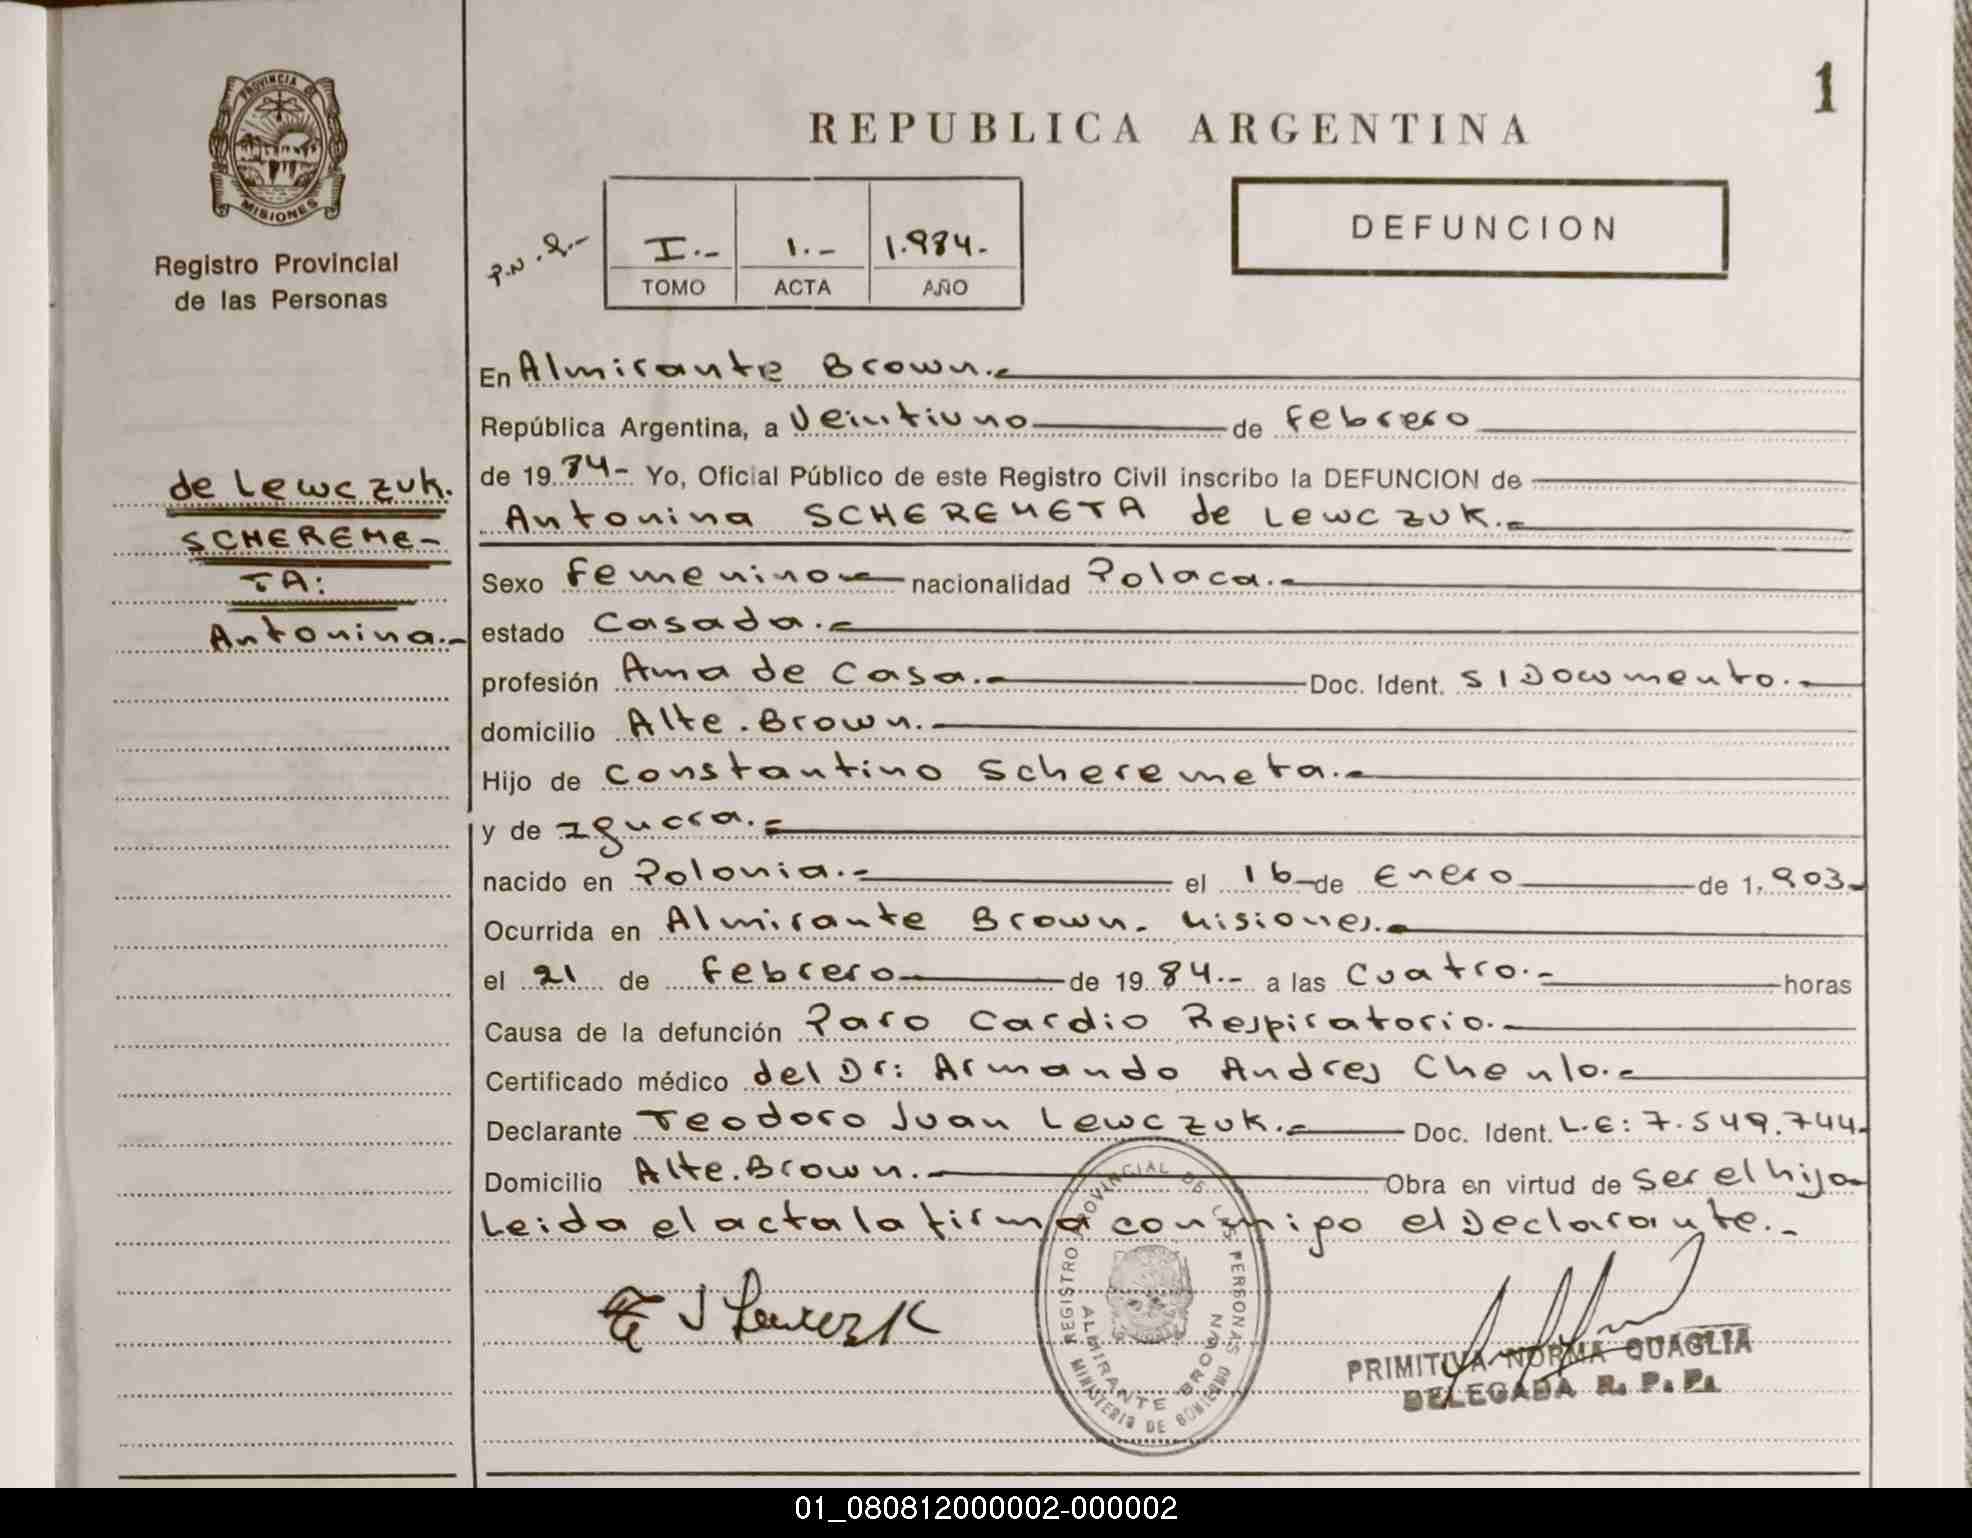 PROVINCIA DE
MISIONES
Registro Provincial
de las Personas
de Lewczuk.
SCHEREME-
TA:
Antonina.-
1
REPUBLICA ARGENTINA
P.N.2.-
I.- 1.- 1.984.-
TOMO ACTA AÑO
DEFUNCION
En Almirante Brown.-
República Argentina, a Veintiuno de Febrero
de 19 84- Yo, Oficial Público de este Registro Civil inscribo la DEFUNCION de
Antonina SCHEREMETA de Lewczuk.-
Sexo Femenino- nacionalidad Polaca.-
estado Casada.-
profesión Ama de Casa.- Doc. Ident. S/Documento.-
domicilio Alte. Brown.-
Hijo de Constantino Scheremeta.-
y de Ignacra.-
nacido en Polonia.- el 16- de Enero de 1.903-
Ocurrida en Almirante Brown- Misiones.-
el 21 de Febrero de 19 84.- a las Cuatro.- horas
Causa de la defunción Paro Cardio Respiratorio.-
Certificado médico del Dr: Armando Andres Chenlo.-
Declarante Teodoro Juan Lewczuk.- Doc. Ident. L.E: 7.549.744-
Domicilio Alte. Brown.- Obra en virtud de Ser el hijo-
Leida el acta la firma conmigo el Declarante.-
J Lewczk
REGISTRO PROVINCIAL DE LAS PERSONAS
ALMIRANTE BROWN
MINISTERIO DE GOBIERNO
PRIMITIVA NORMA QUAGLIA
DELEGADA R. P. P.
01_080812000002-000002